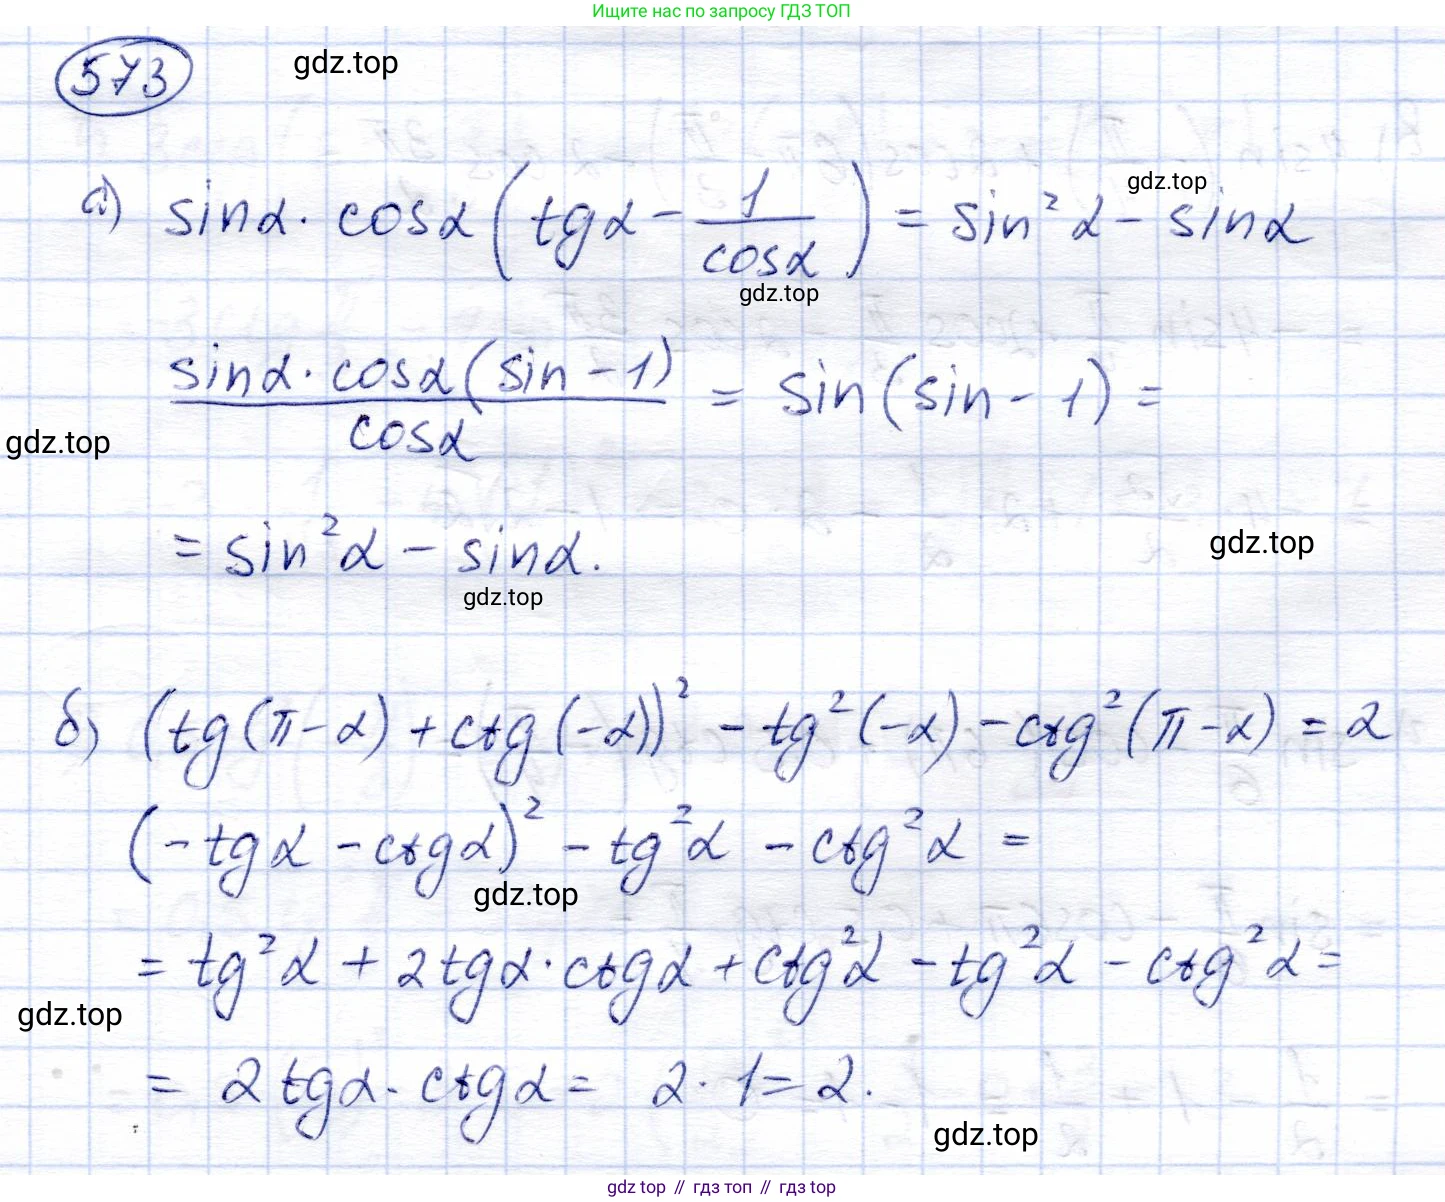 Ищите нас по запросу ГДЗ ТОП
573
gdz.top
а) sinα · cosα (tgα - 1/cosα) = sin²α - sinα
gdz.top
gdz.top
sinα · cosα (sin - 1)/cosα = sin (sin - 1) =
gdz.top
= sin²α - sinα.
gdz.top
gdz.top
б) (tg(π-α) + ctg(-α))² - tg²(-α) - ctg²(π-α) = 2
(-tgα - ctgα)² - tg²α - ctg²α =
gdz.top
= tg²α + 2tgα · ctgα + ctg²α - tg²α - ctg²α =
gdz.top
= 2tgα · ctgα = 2 · 1 = 2.
gdz.top
gdz top // гдз топ // гдз top